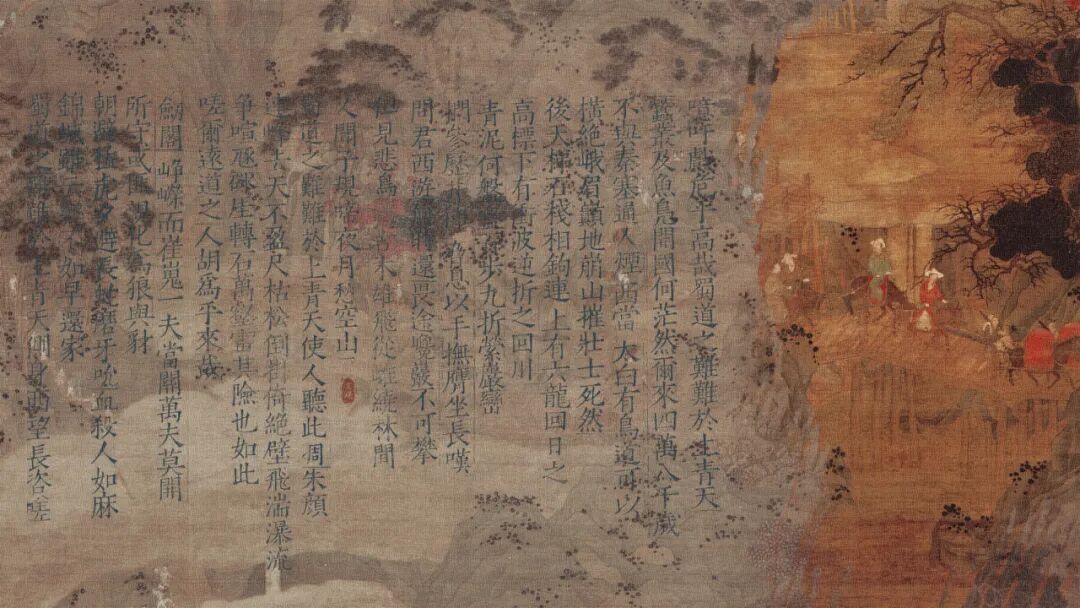 噫吁戲危乎高哉蜀道之難難於上青天
蠶叢及魚鳧開國何茫然爾來四萬八千歲
不與秦塞通人煙西當太白有鳥道可以
橫絕峨眉巔地崩山摧壯士死然
後天梯石棧相鉤連上有六龍回日之
高標下有衝波逆折之回川
青泥何盤步九折縈巖巒
捫參歷井息以手撫膺坐長嘆
問君西遊還畏途巉巖不可攀
但見悲鳥古木雄飛從雌繞林間
又聞子規啼夜月愁空山
蜀道之難難於上青天使人聽此凋朱顏
連峰去天不盈尺枯松倒掛倚絕壁飛湍瀑流
爭喧豗砯崖轉石萬壑雷其險也如此
嗟爾遠道之人胡爲乎來哉
劒閣崢嶸而崔嵬一夫當關萬夫莫開
所守或匪親化爲狼與豺
朝避猛虎夕避長蛇磨牙吮血殺人如麻
錦城雖如早還家
蜀道之難難於上青天側身西望長咨嗟